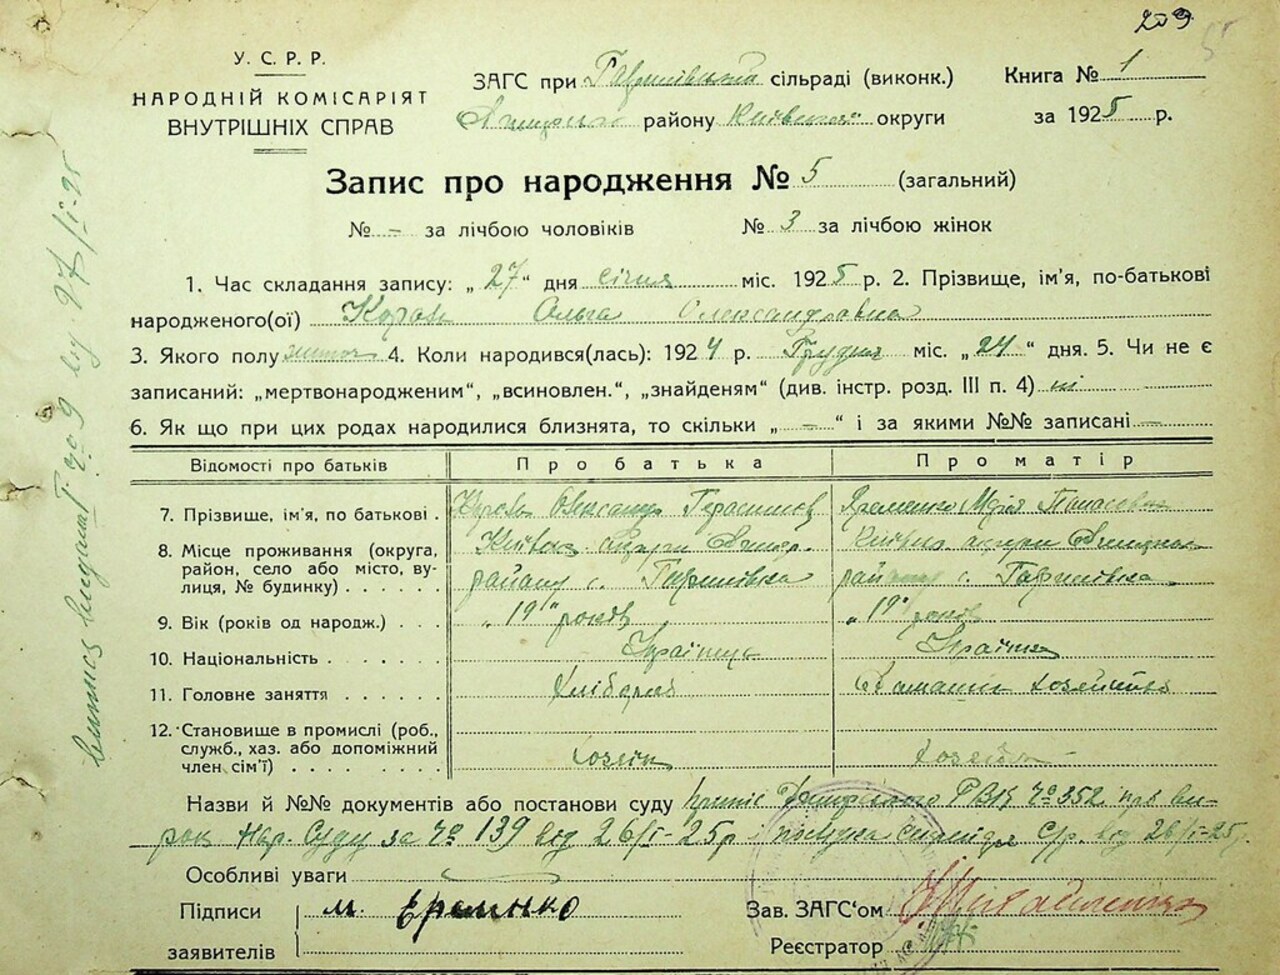 209
У. С. Р. Р.
НАРОДНІЙ КОМІСАРІЯТ
ВНУТРІШНІХ СПРАВ
ЗАГС при Гаврилівській сільраді (виконк.)
району Київської округи
Книга № 1
за 1925 р.
Запис про народження № 5 (загальний)
№ - за лічбою чоловіків № 3 за лічбою жінок
1. Час складання запису: „27“ дня січня міс. 1925 р. 2. Прізвище, ім'я, по-батькові
народженого(ої) Ольга Олександровна
3. Якого полу 4. Коли народився(лась): 1924 р. Грудня міс. „24“ дня. 5. Чи не є
записаний: „мертвонародженим“, „всиновлен.“, „знайденям“ (див. інстр. розд. III п. 4) ні
6. Як що при цих родах народилися близнята, то скільки „ — “ і за якими №№ записані —
Відомості про батьків Про батька Про матір
7. Прізвище, ім'я, по батькові . Герасимов Яременко Марія Панасовна
8. Місце проживання (округа,
район, село або місто, ву-
лиця, № будинку) . . . . . . району с. Гаврилівка району с. Гаврилівка
9. Вік (років од народж.) . . . „19“ років „19“ років
10. Національність . . . . . . Українець Українка
11. Головне заняття . . . . . . Хлібороб
12. Становище в промислі (роб.,
служб., хаз. або допоміжний
член сім'ї) . . . . . . . . . .
Назви й №№ документів або постанови суду Димерського РВК № 352 про ви-
рок Нар. Суду за № 139 від 26/I-25р с/р. від 26/I-25р.
Особливі уваги
Підписи
заявителів
м. Єременко
Зав. ЗАГС'ом
Реєстратор
від 27/I-25